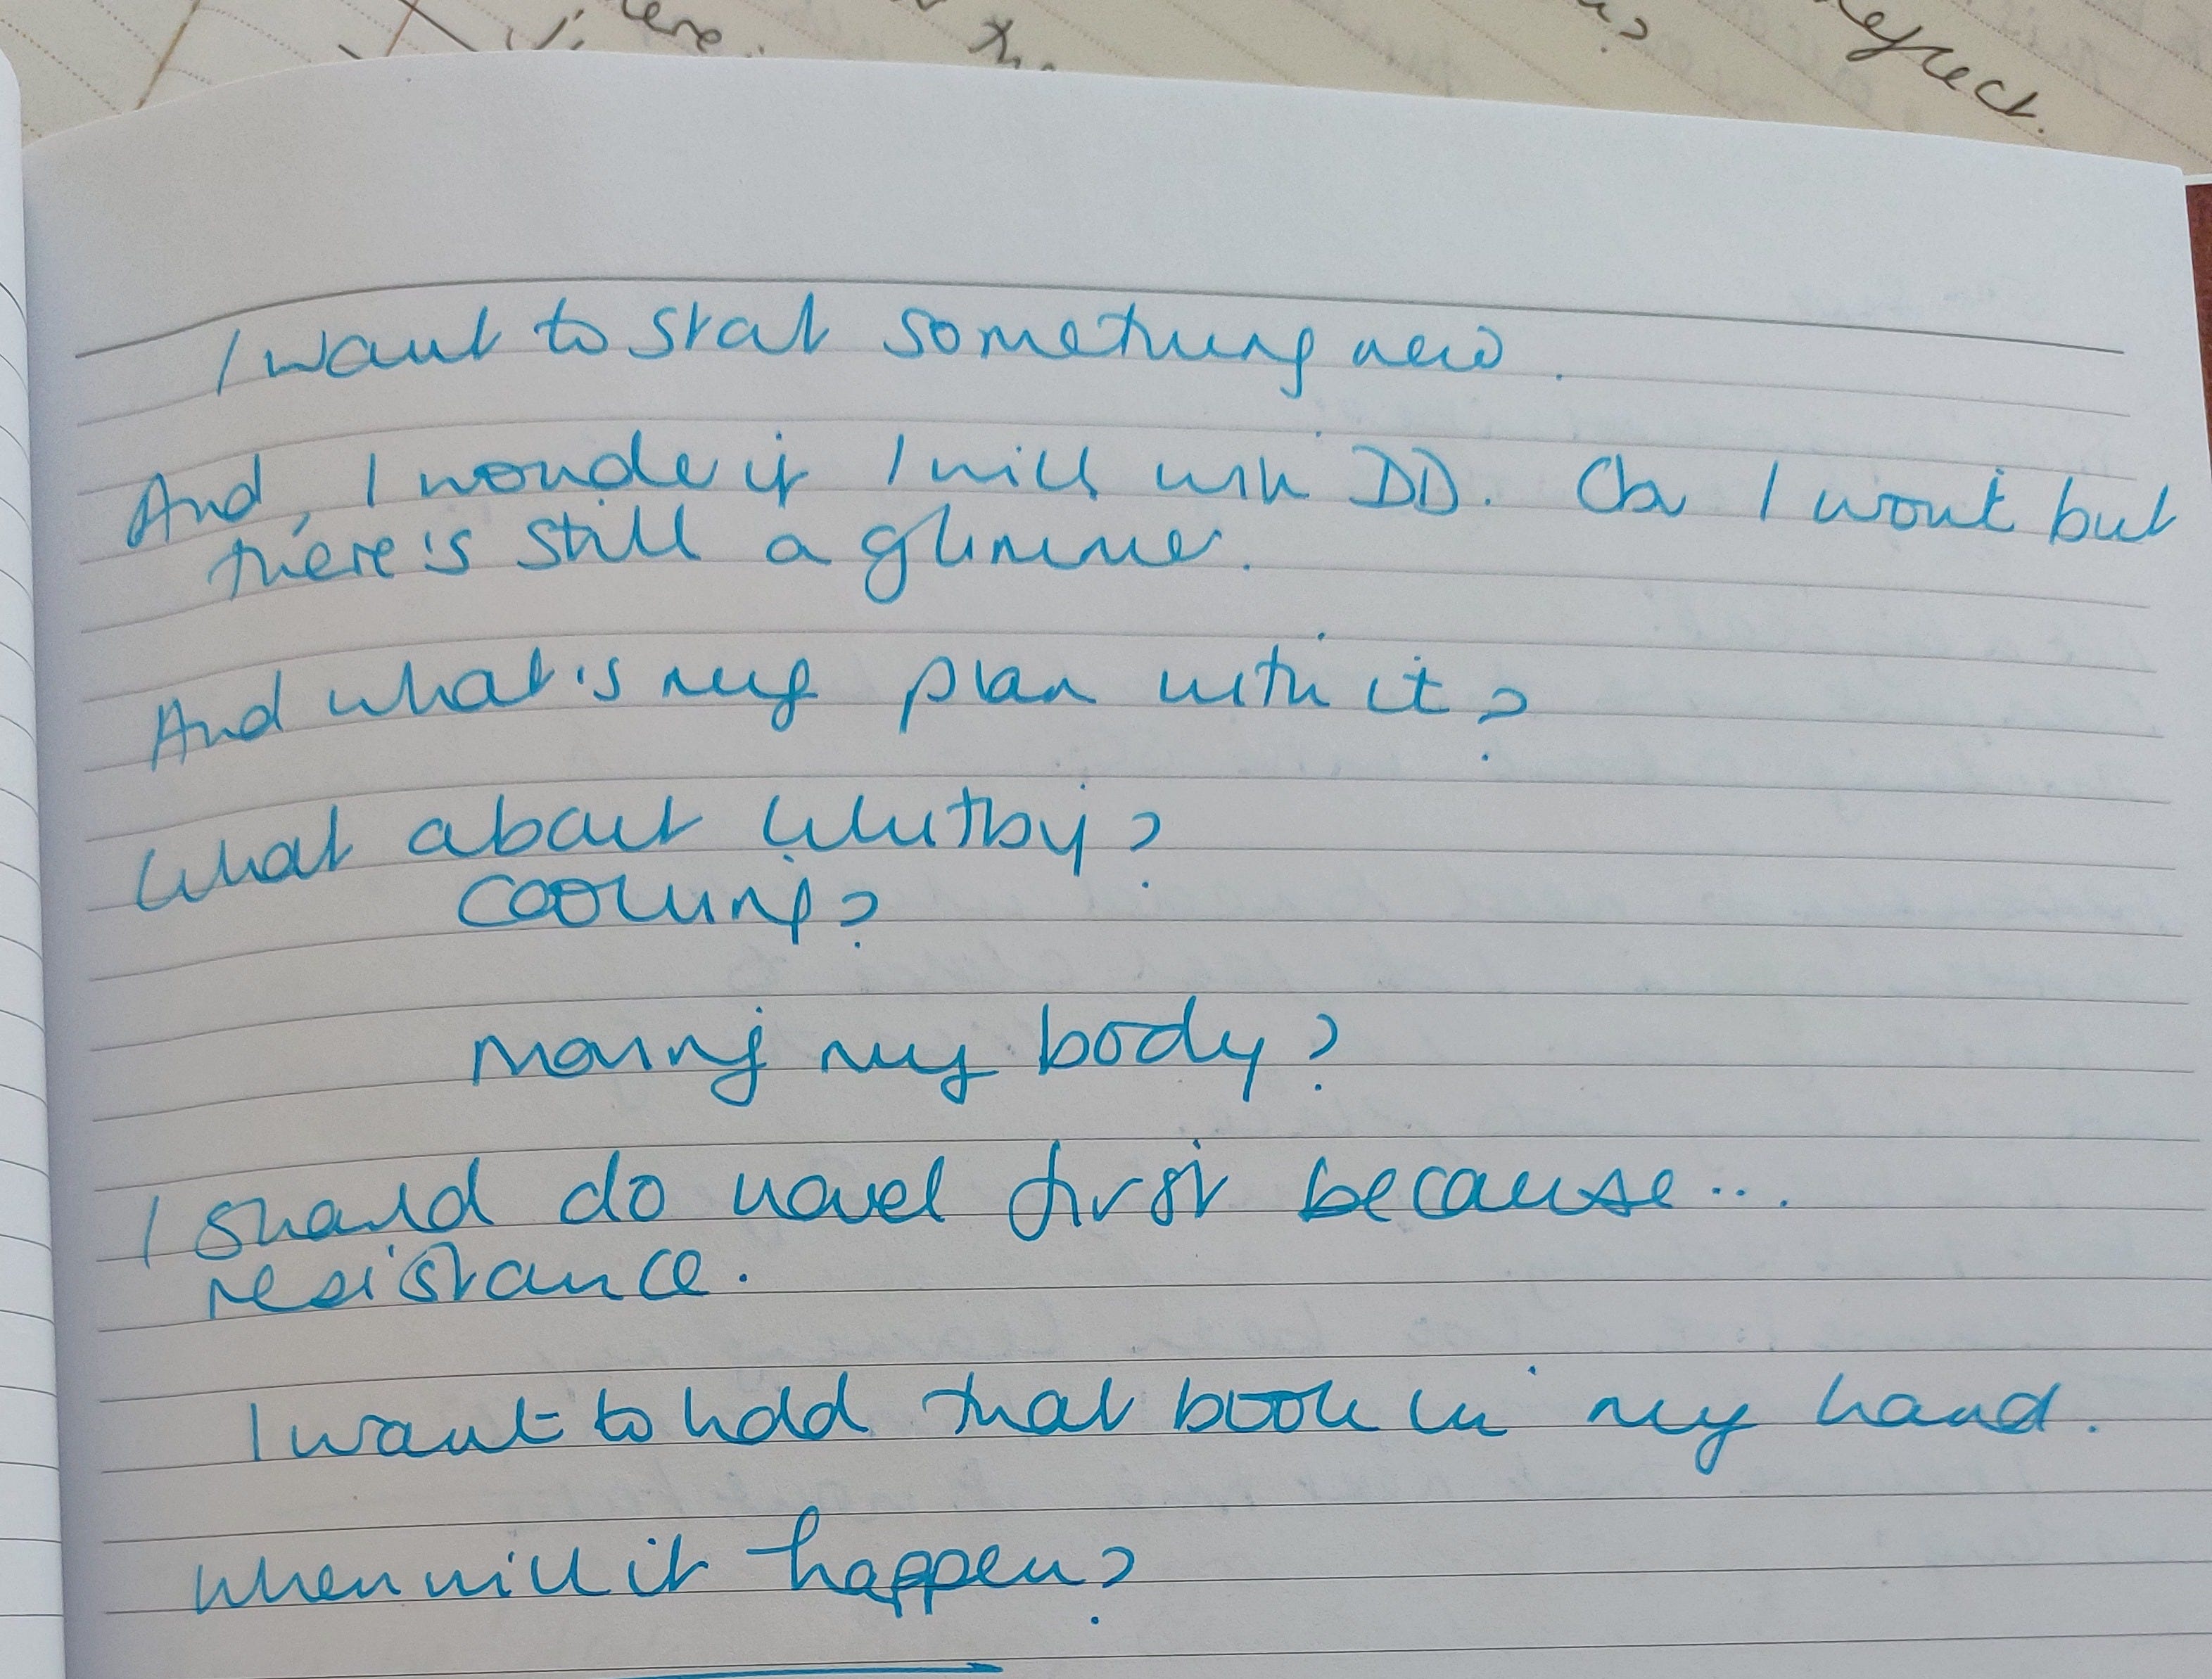 neglect.
I want to start something new.
And, I wonder if I will win DD. Ofc I wont but
there's still a glimmer.
And what is my plan with it?
What about Whitby?
Cooking?
Moving my body?
I should do novel first because...
resistance.
I want to hold that book in my hand.
When will it happen?